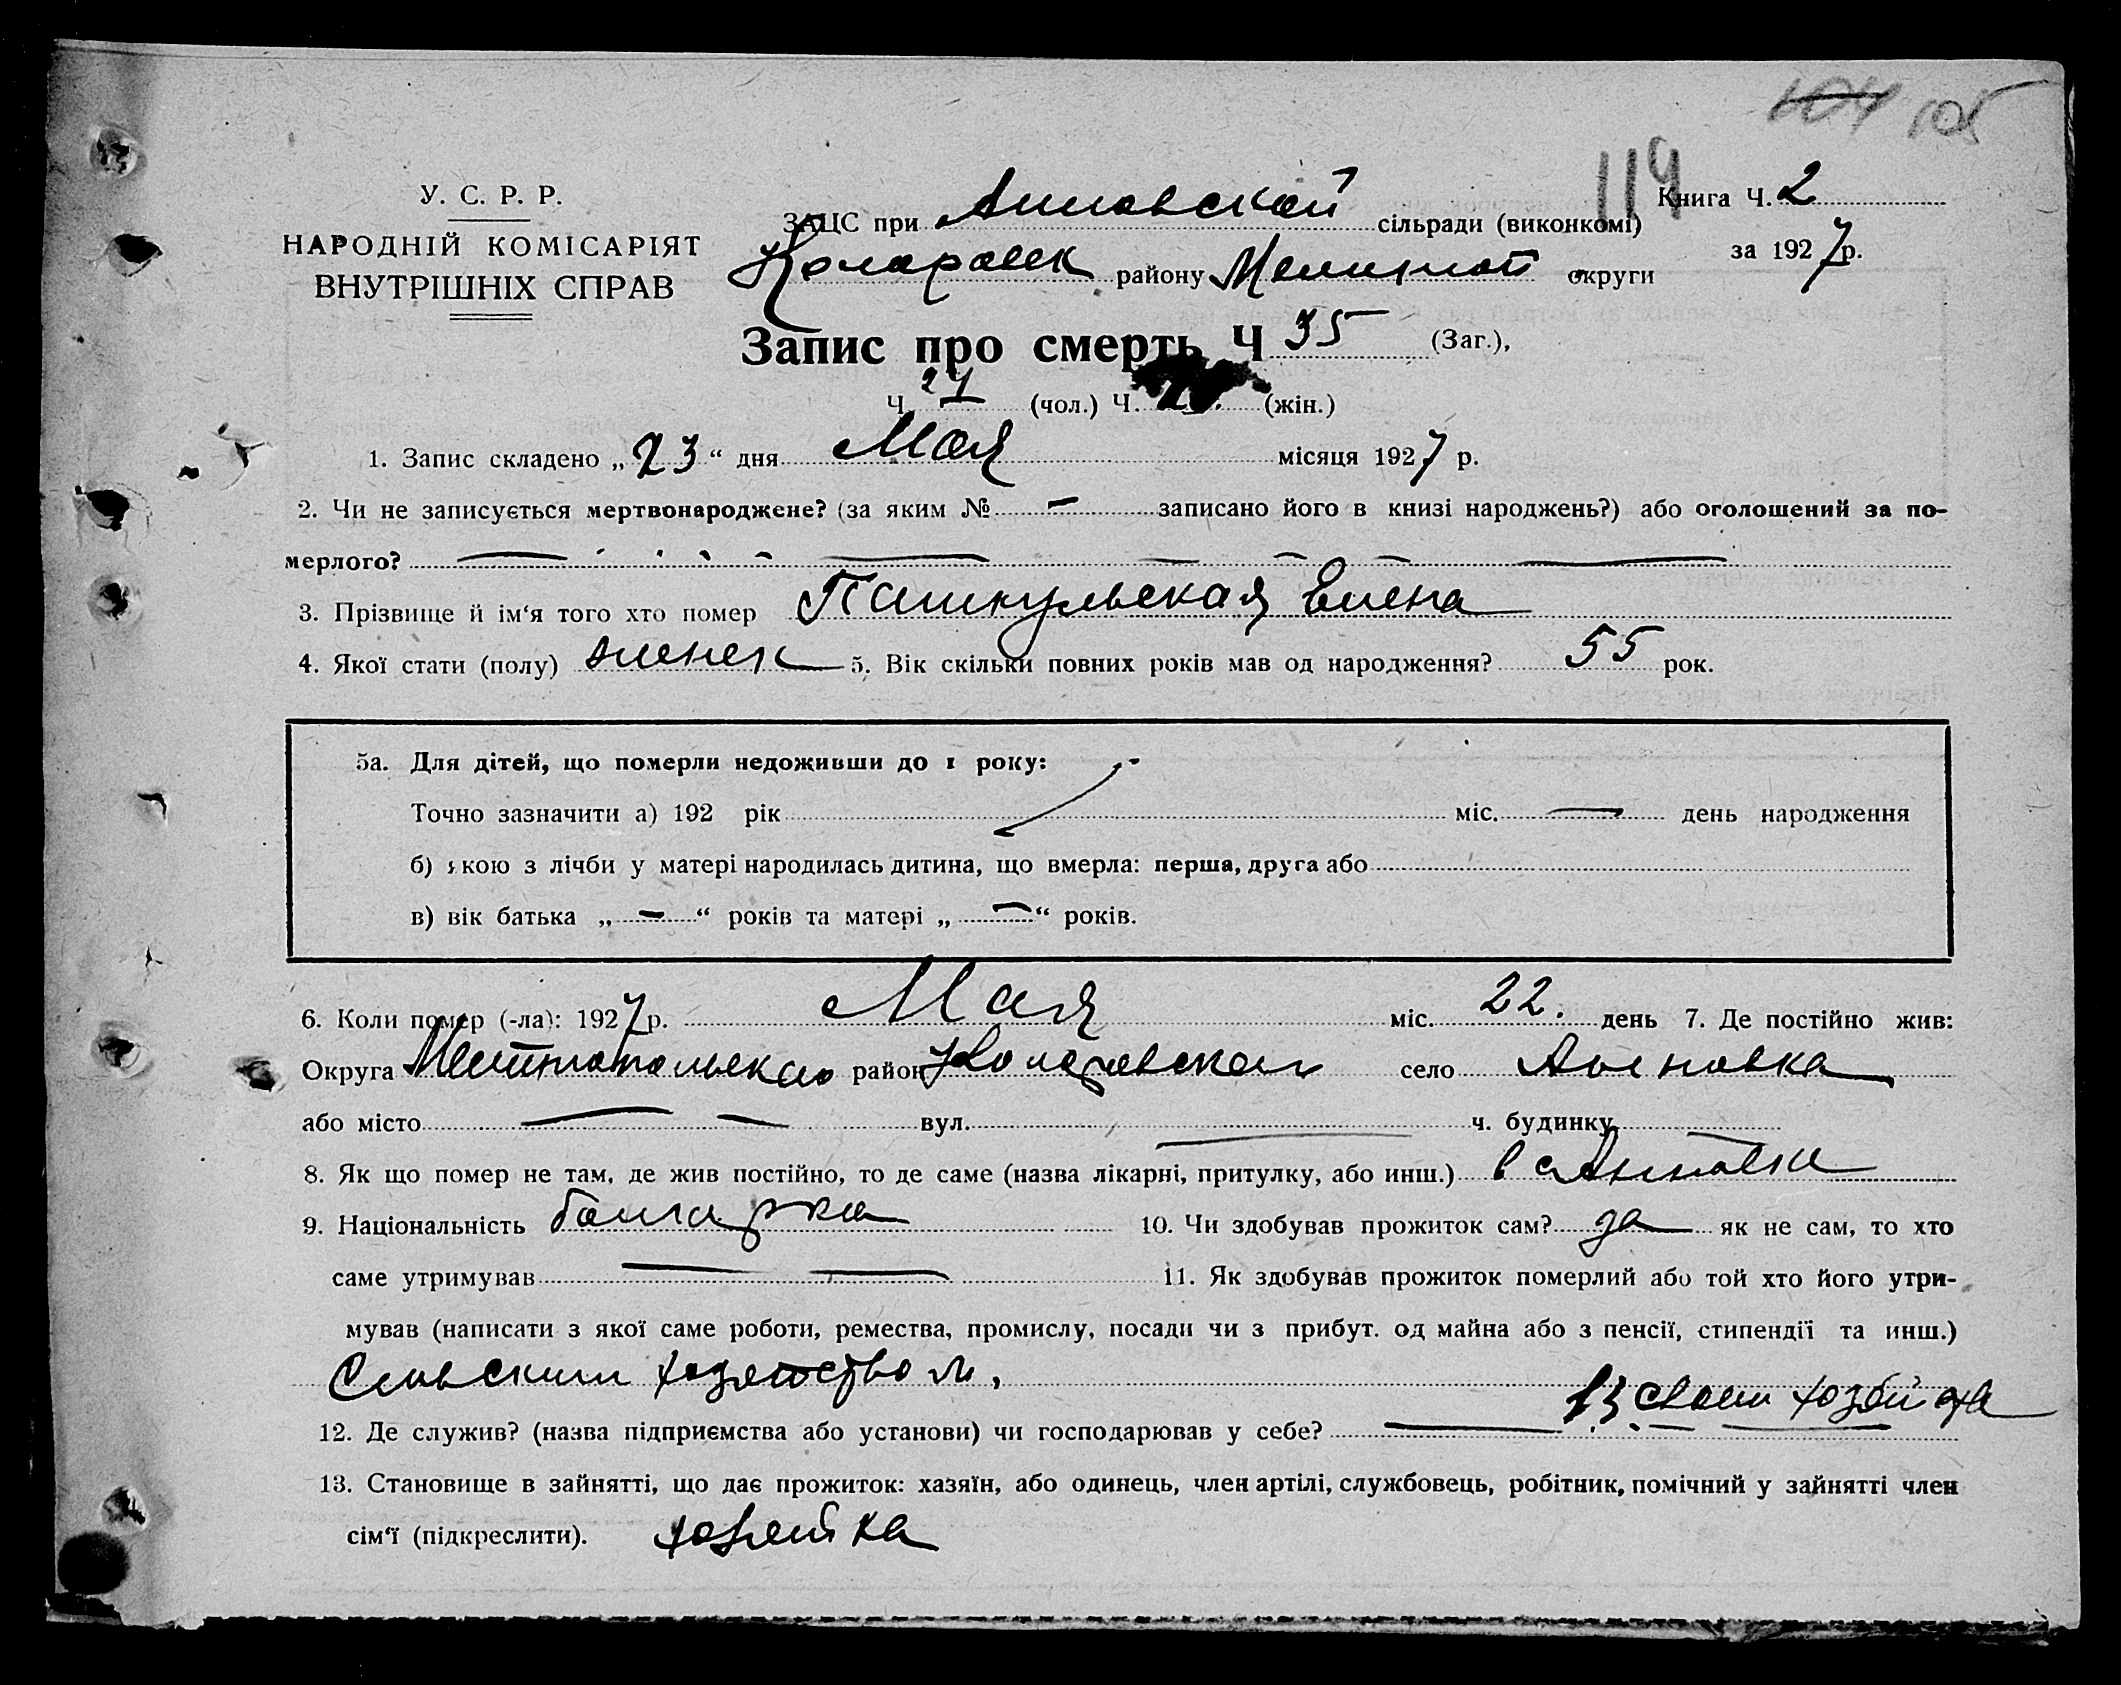 104 105
119
У. С. Р. Р.
НАРОДНІЙ КОМІСАРІЯТ
ВНУТРІШНІХ СПРАВ
ЗАЦС при Анновской сільради (виконкомі) Книга Ч. 2
Коларовск району Мелитоп округи за 1927 р.
Запис про смерть Ч 35 (Заг.),
Ч. (чол.) Ч. (жін.)
1. Запис складено „ 23 “ дня Мая місяця 1927 р.
2. Чи не записується мертвонароджене? (за яким № — записано його в книзі народжень?) або оголошений за по-
мерлого?
3. Прізвище й ім‘я того хто помер Елена
4. Якої стати (полу) женск 5. Вік скільки повних років мав од народження? 55 рок.
5а. Для дітей, що померли недоживши до 1 року:
Точно зазначити а) 192 рік міс. — день народження
б) якою з лічби у матері народилась дитина, що вмерла: перша, друга або
в) вік батька „ — “ років та матері „ — “ років.
6. Коли помер (-ла): 1927 р. Мая міс. 22. день 7. Де постійно жив:
Округа район село Анновка
або місто — — вул. ч. будинку
8. Як що помер не там, де жив постійно, то де саме (назва лікарні, притулку, або инш.) в Анновки
9. Національність болгарка 10. Чи здобував прожиток сам? да як не сам, то хто
саме утримував — — 11. Як здобував прожиток померлий або той хто його утри-
мував (написати з якої саме роботи, ремества, промислу, посади чи з прибут. од майна або з пенсії, стипендії та инш.)
Сельским хозяйством,
В своем
12. Де служив? (назва підприємства або установи) чи господарював у себе?
13. Становище в зайнятті, що дає прожиток: хазяїн, або одинець, член артілі, службовець, робітник, помічний у зайнятті член
сім‘ї (підкреслити). хозяйка